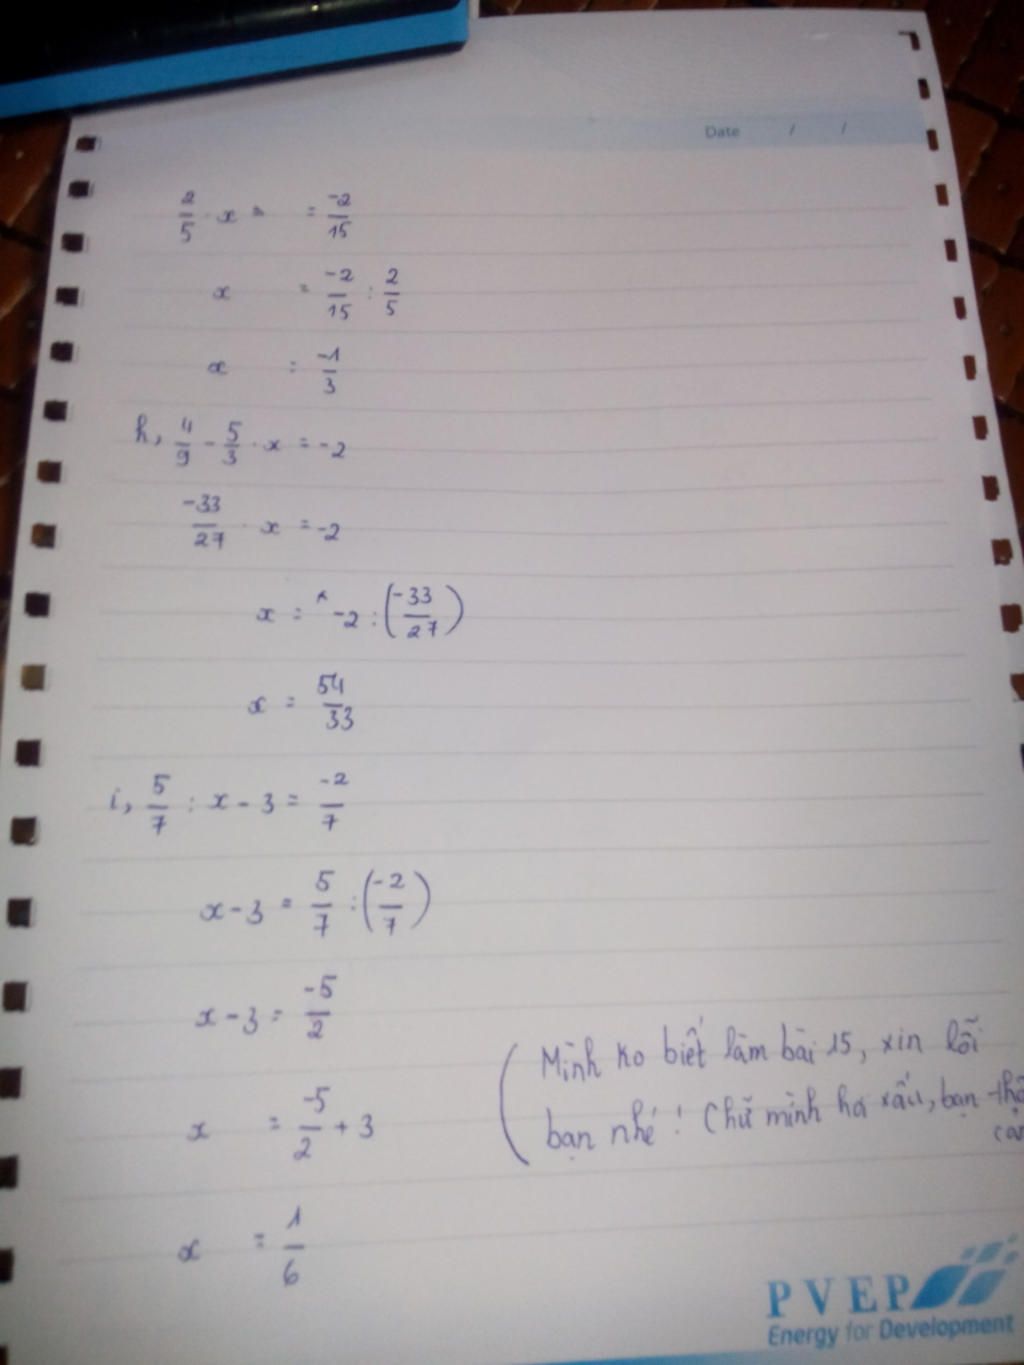 Date / /
2/5 . x = = -2/15
x = -2/15 : 2/5
x = -1/3
h, 4/9 - 5/3 . x = -2
-33/27 . x = -2
x = -2 : (-33/27)
x = 54/33
i, 5/7 : x - 3 = -2/7
x - 3 = 5/7 : (-2/7)
x - 3 = -5/2
x = -5/2 + 3
x = 1/6
(Mình ko biết làm bài 15, xin lỗi
bạn nhé! Chữ mình hơi xấu, bạn
PVEP
Energy for Development